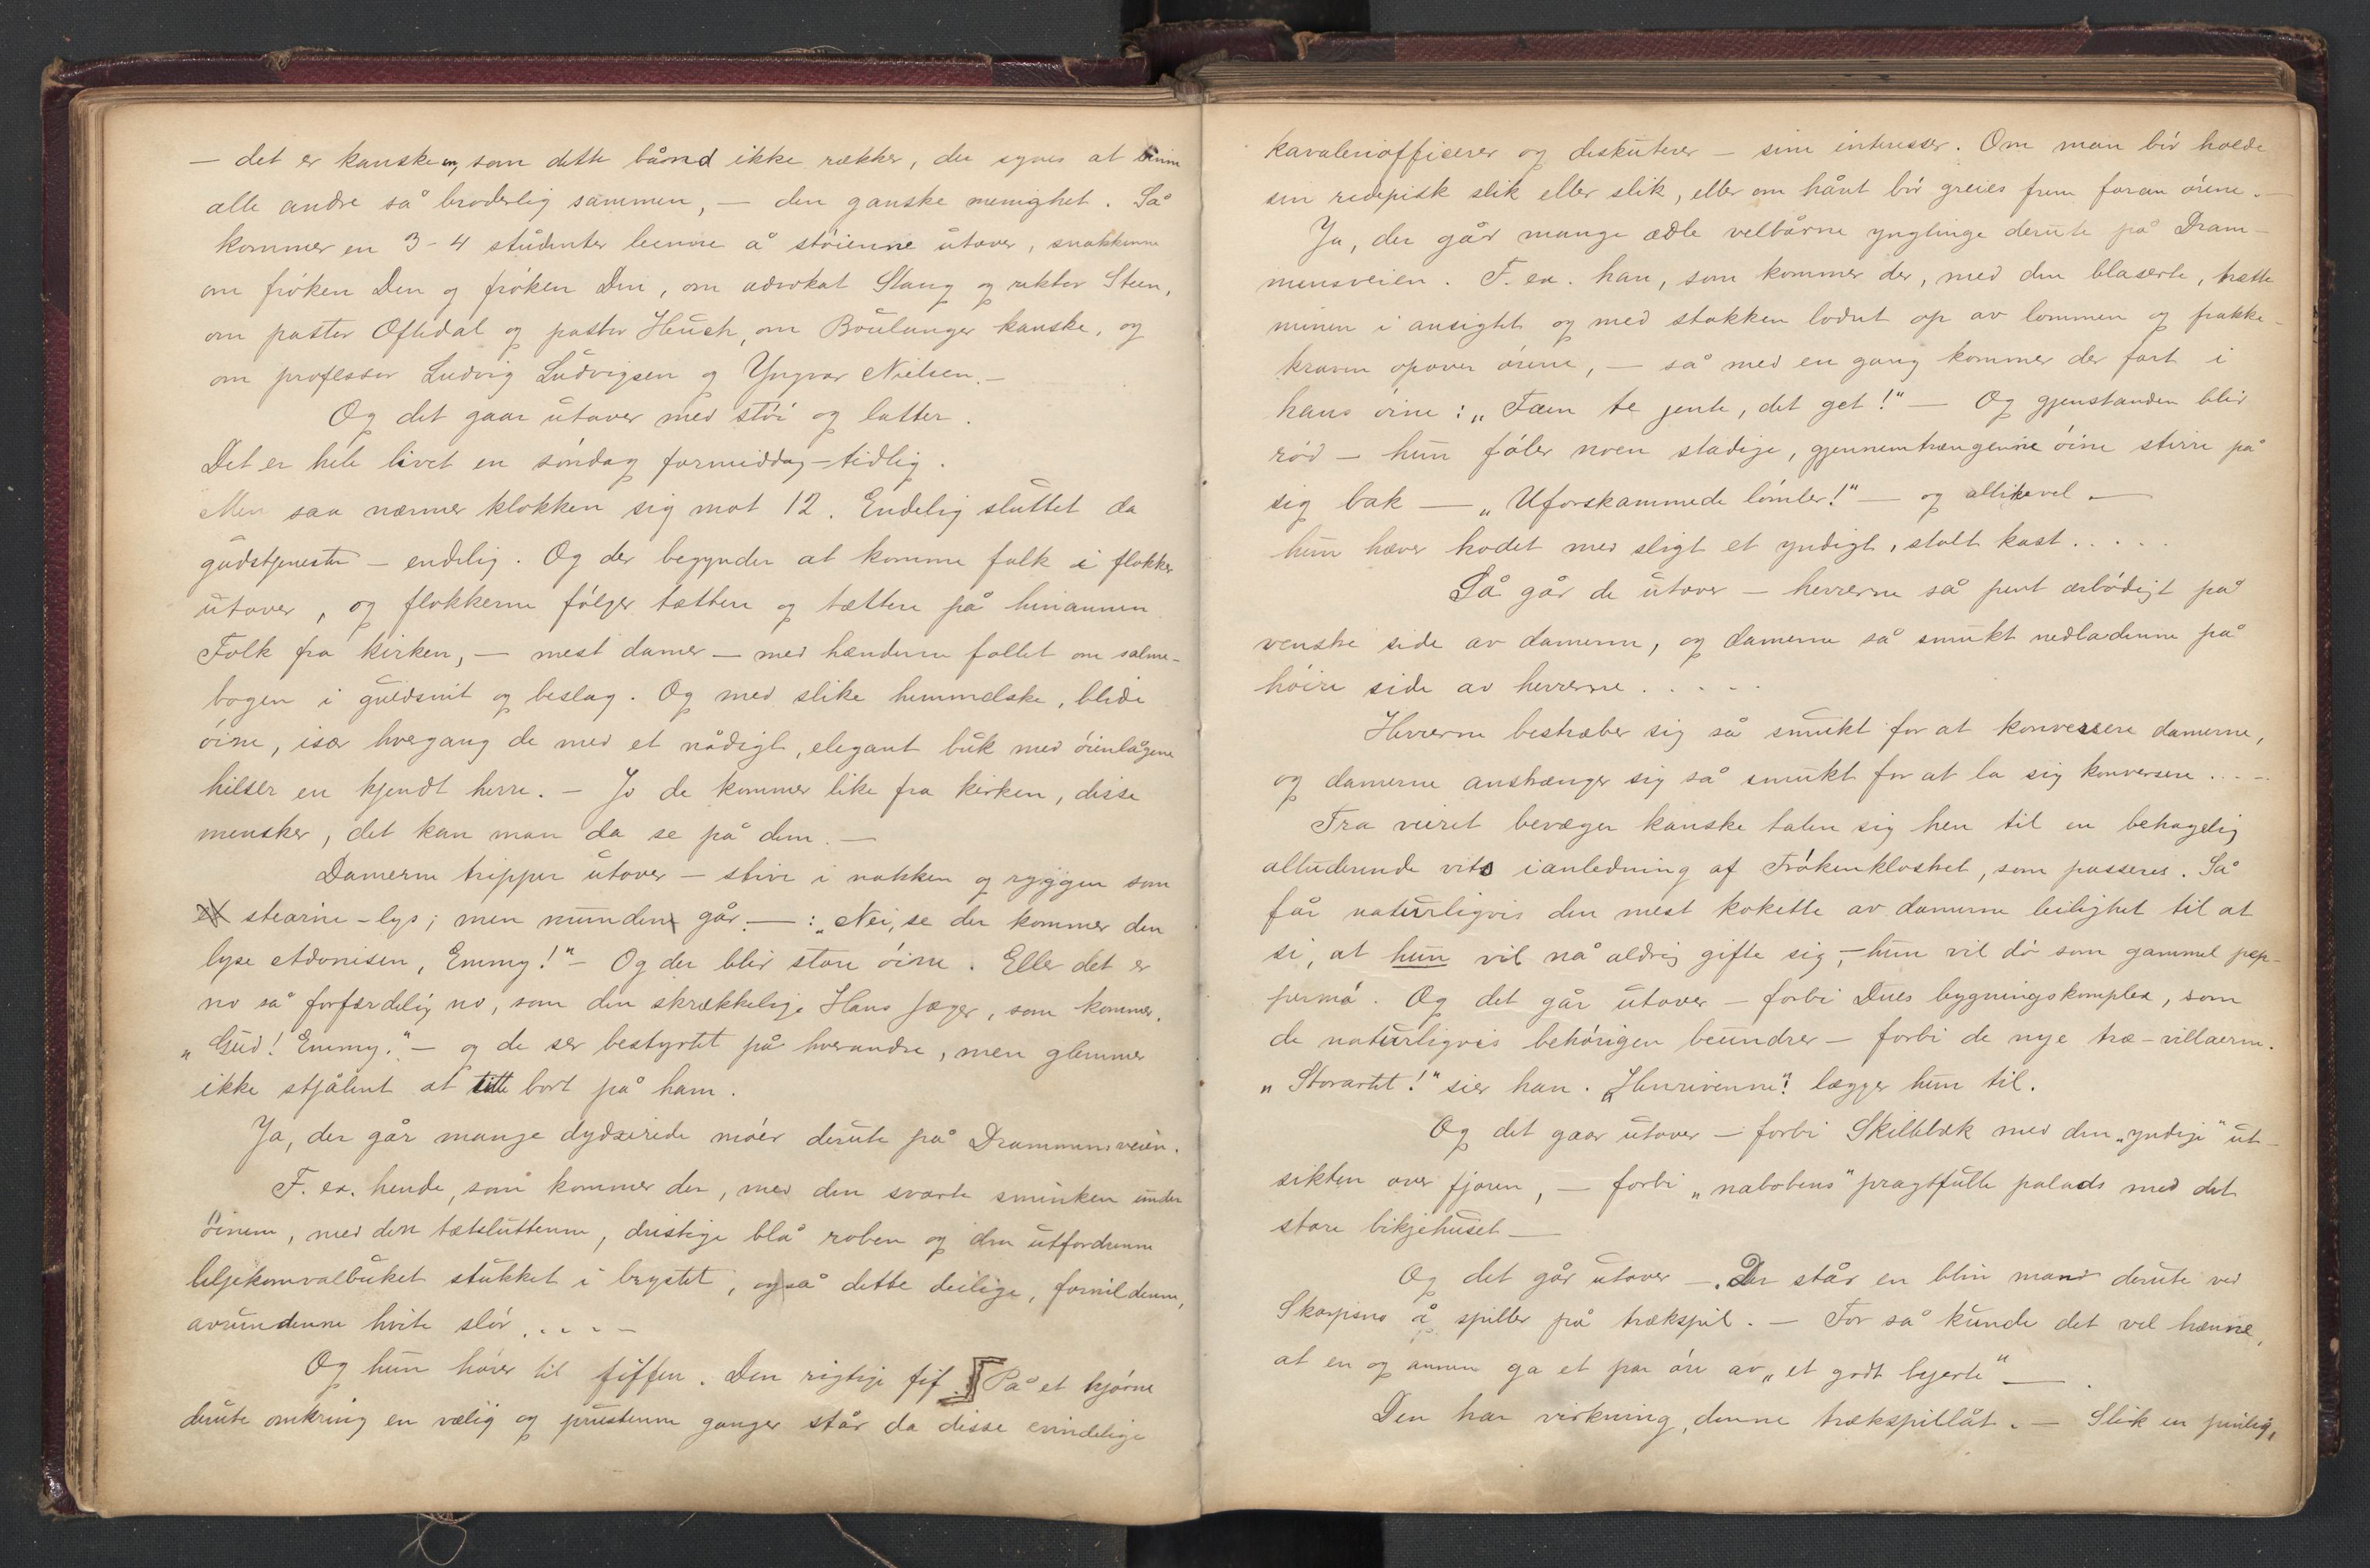 — det er kanske en, som dette bånd ikke rækker, der synes at binne
alle andre så broderlig sammen, — den ganske menighet. Så
kommer en 3-4 studenter leenne å støienne utover, snakkenne
om frøken Den og frøken Den, om advokat Stang og rektor Steen,
om pastor Oftedal og pastor Heuch, om Boulanger kanske, og
om professor Ludvig Ludvigsen og Yngvar Nielsen. —
Og det gaar utover med støi og latter.
Det er hele livet en søndag formiddag — tidlig.
Men saa nærmer klokken sig mot 12. Endelig sluttet da
gudstjenesten — endelig. Og der begynder at komme folk i flokker
utover, og flokkerne følger tættere og tættere på hinannen
Folk fra kirken, — mest damer — med hænderne follet om salme-
bogen i guldsnit og beslag. Og med slike himmelske, blide
øine, især hvergang de med et nådigt, elegant buk med øienlågene
hilser en kjendt herre. — Jo de kommer like fra kirken, disse
mensker, det kan man da se på dem. —
Damerne tripper utover — stive i nakken og ryggen som
et stearin-lys; men munden går. — : „Nei, se der kommer den
lyse Adonisen, Emmy!" — Og der blir store øine. Eller det er
no så forfærdelig no, som den skrækkelige Hans Jæger, som kommer.
„Gud! Emmy." — og de ser bestyrtet på hverandre, men glemmer
ikke stjålent at titte bort på ham.
Ja, der går mange dydzirede møer derute på Drammensveien.
F. ex. hende, som kommer der, med den svarte sminken under
øinene, med den tætsluttenne, dristige blå roben og den utfordrenne
liljekonvalbuket stukket i brystet, også dette deilige, formildenne,
avrundenne hvite slør. . . . —
Og hun hører til fiffen. Den rigtige fif. På et hjørne
derute omkring en vælig og prustenne ganger står da disse evindelige
kavaleriofficerer og diskuterer — sine interesser. Om man bør holde
sin ridepisk slik eller slik, eller om håret bør greies frem foran ørene. —
Ja, der går mange ædle velbårne ynglinge derute på Dram-
mensveien. F. ex. han, som kommer der, med den blaserte, trætte
minen i ansigtet og med stokken lodret op av lommen og frakke-
kraven opover ørene, — så med en gang kommer der fart i
hans øine: „Faen te jente, det get!" — Og gjenstanden blir
rød — hun føler noen stadige, gjennemtrængenne øine stirre på
sig bak — „Uforskammede lømler!" — og allikevel —
hun hæver hodet med sligt et yndigt, stolt kast. . . . .
Så går de utover — herrerne så pent ærbødigt på
venstre side av damerne, og damerne så smukt nedladenne på
høire side av herrerne. . . . .
Herrerne bestræber sig så smukt for at konversere damerne,
og damerne anstrænger sig så smukt for at la sig konversere. . . —
Fra veiret bevæger kanske talen sig hen til en behagelig
alluderende vits i anledning af Frøkenklostret, som passeres. Så
får naturligvis den mest kokette av damerne leilighet til at
si, at hun vil nå aldrig gifte sig, — hun vil dø som gammel pep-
permø. Og det går utover — forbi Dues bygningskomplex, som
de naturligvis behørigen beundrer — forbi de nye træ-villaerne.
„Storartet!" sier han. „Henrivenne"! lægger hun til.
Og det gaar utover — forbi Skillebæk med den „yndige" ut-
sikten over fjoren, — forbi „nabobens" pragtfulle palads med det
store bikjehuset —
Og det går utover —. Der står en blin mand derute ved
Skarpsno å spiller på trækspil. — For så kunde det vel hænne,
at en og annen ga et par øre av „et godt hjerte" — .
Den har virkning, denne trækspillåt. — Slik en pinlig,